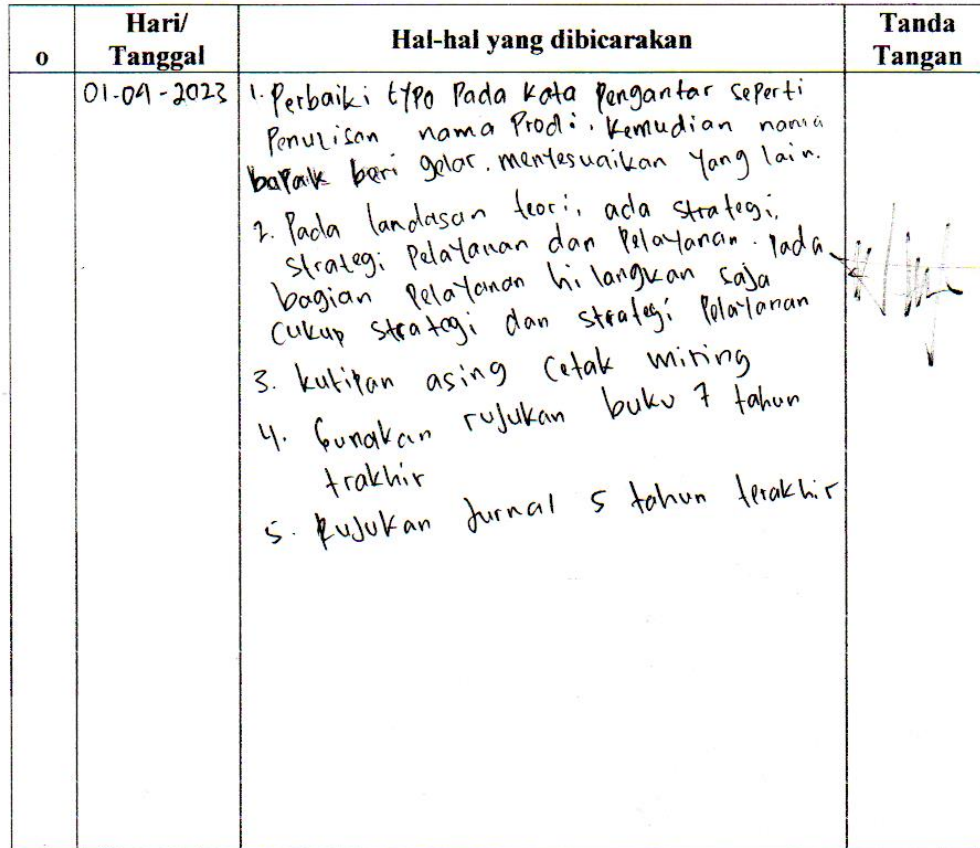 o
Hari/
Tanggal
Hal-hal yang dibicarakan
Tanda
Tangan
01-09-2023
1. Perbaiki typo Pada Kata Pengantar seperti
Penulisan nama Prodi. Kemudian nama
bapak beri gelar. menyesuaikan yang lain.
2. Pada landasan teori, ada strategi,
strategi Pelayanan dan Pelayanan. Pada
bagian Pelayanan hilangkan saja
Cukup strategi dan strategi Pelayanan
3. kutipan asing Cetak miring
4. Gunakan rujukan buku 7 tahun
trakhir
5. Rujukan Jurnal 5 tahun terakhir